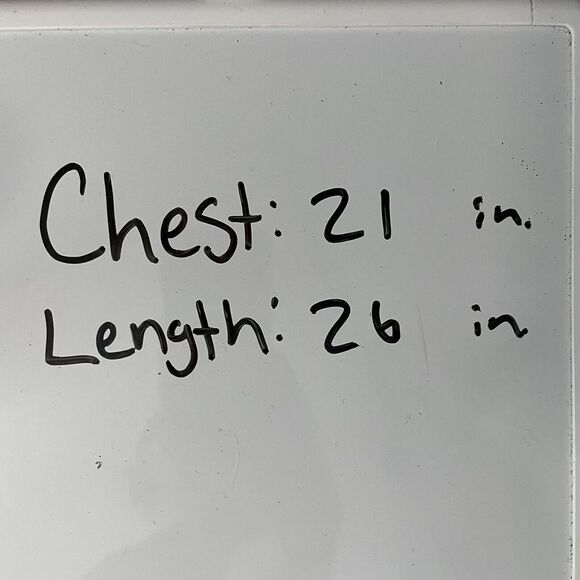 Chest: 21 in.
Length: 26 in